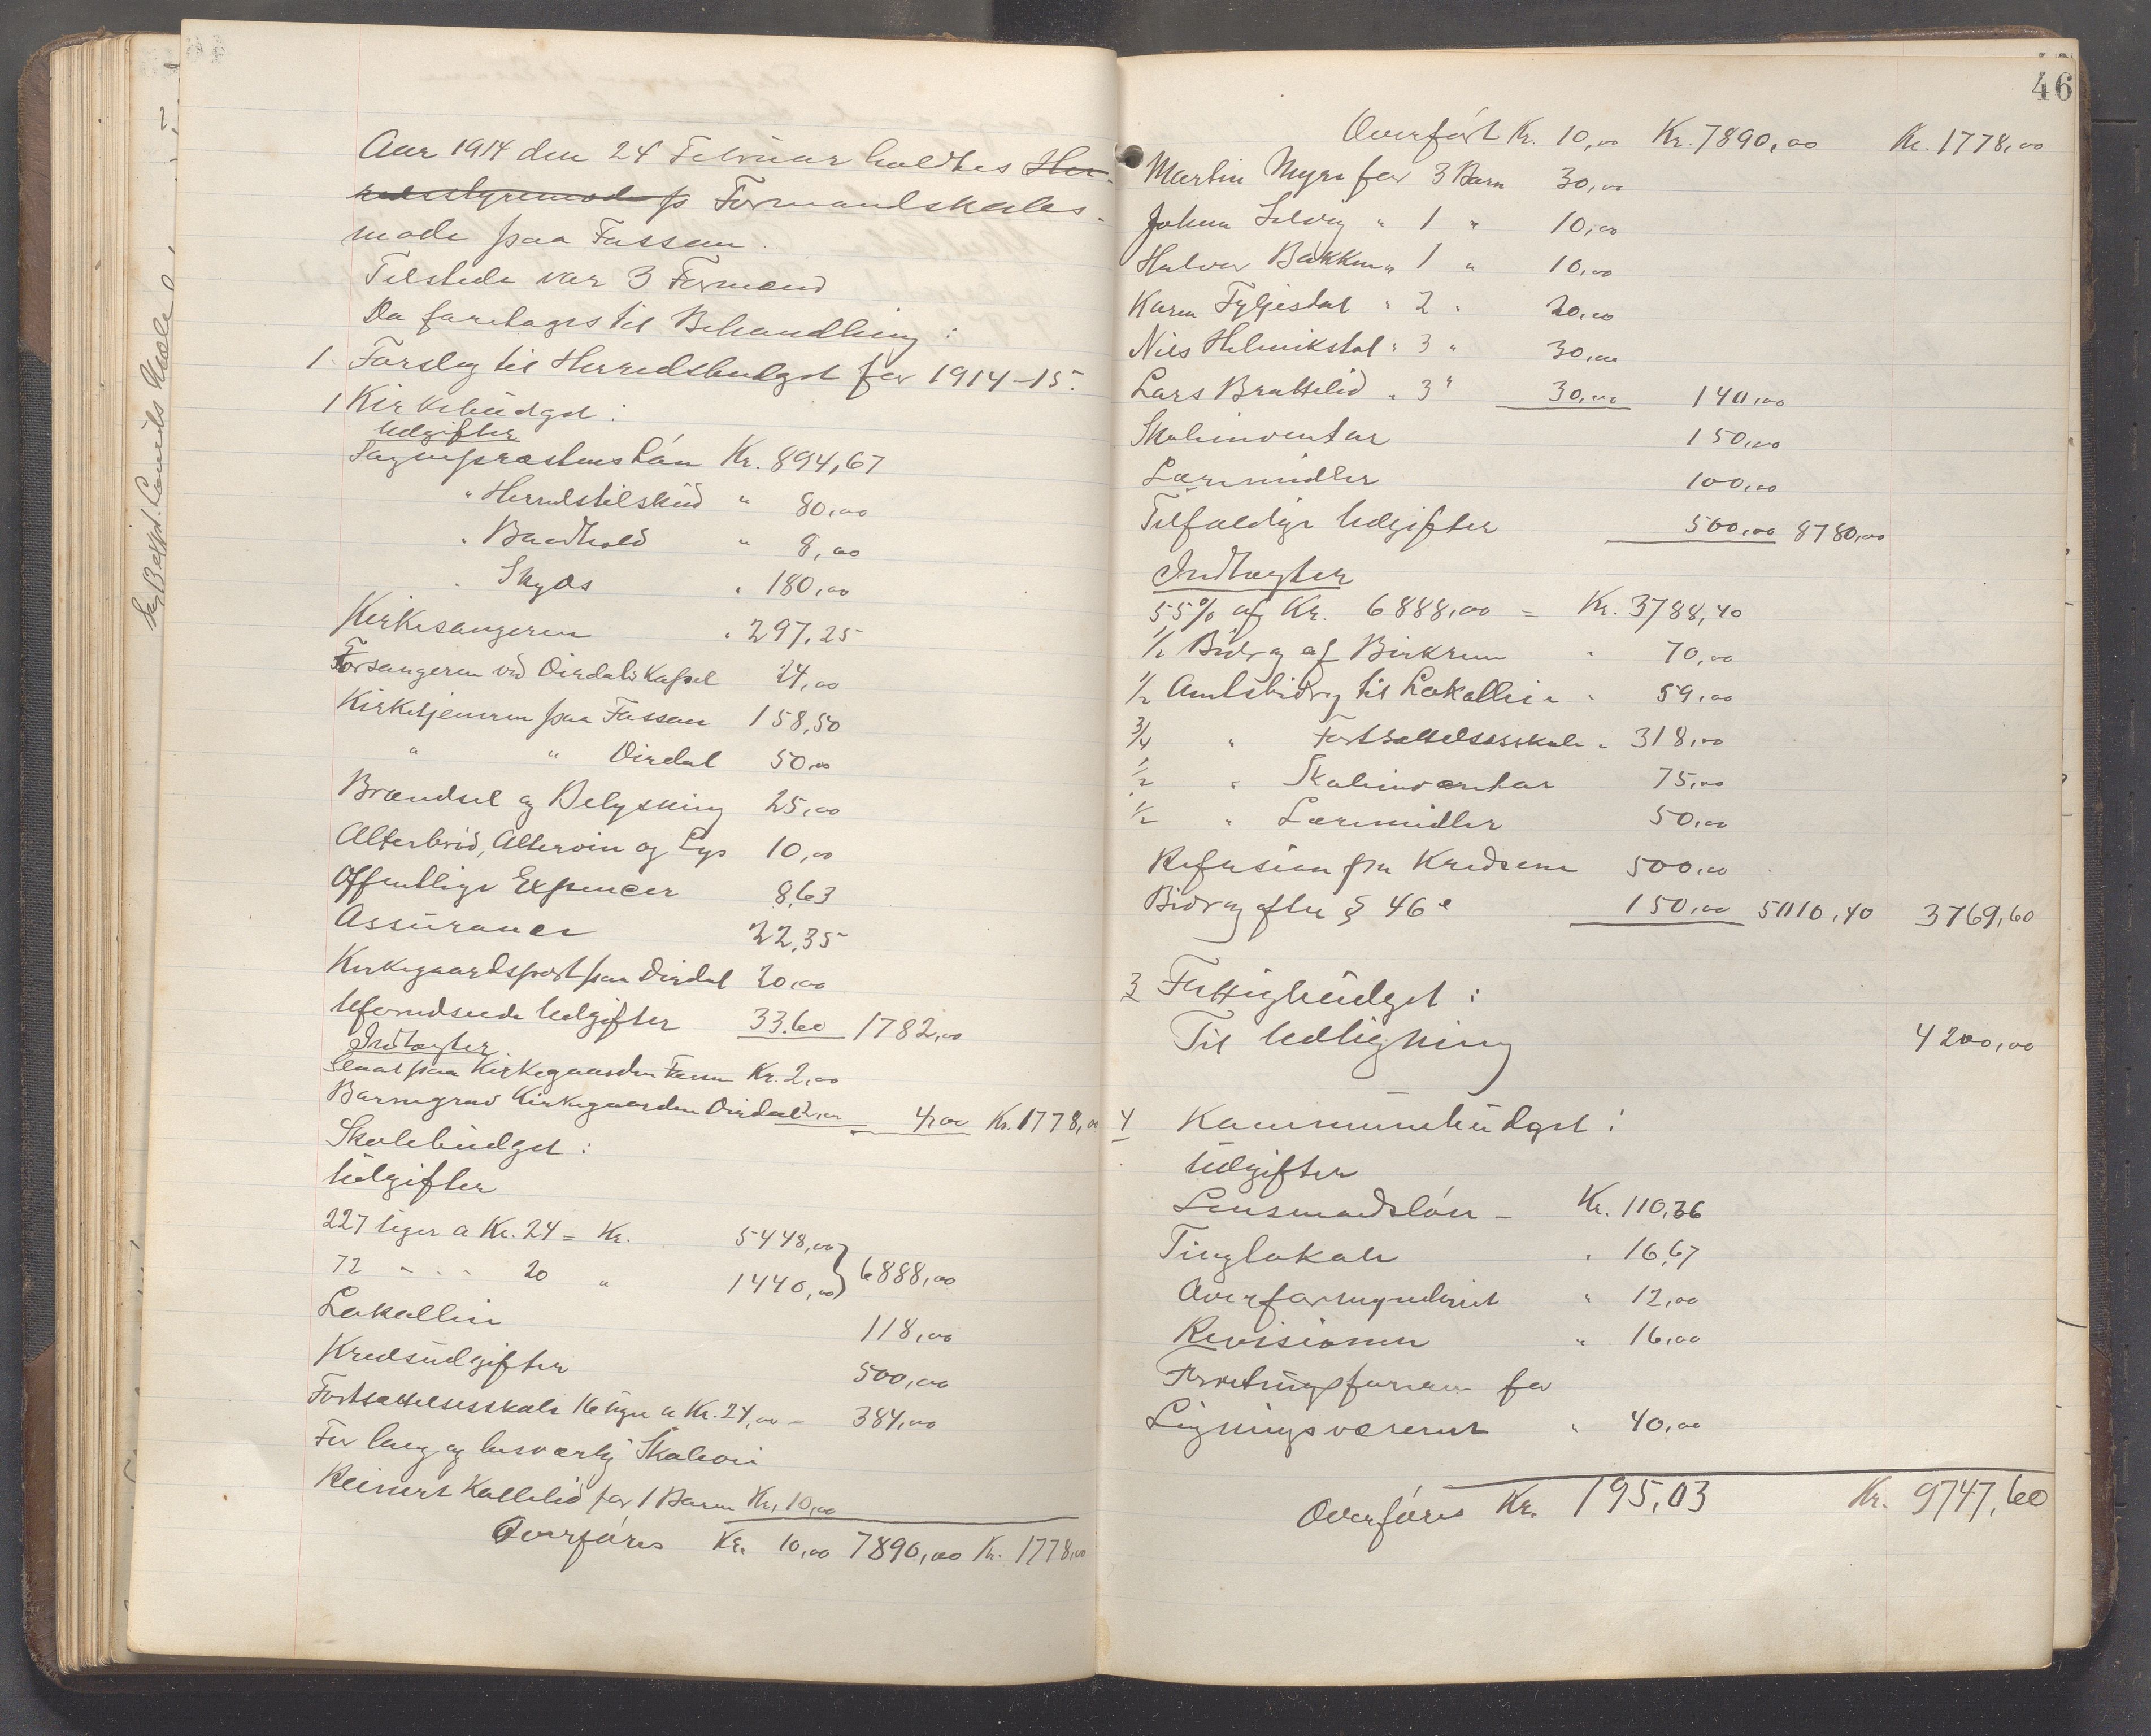 Aar 1914 den 24 Februar holdtes Her-
redsstyremøde p Formandskabs-
møde paa Fossan.
Tilstede var 3 Formænd
Da foretages til Behandling:
1. Forslag til Herredsbudget for 1914-15.
1 Kirkebudget:
Udgifter
Sogneprestens Løn Kr. 894,67
" Herredstilskud " 80,00
" Baadhold " 8,00
" Skyds " 180,00
Kirkesangeren " 297,25
Forsangeren ved Dirdals Kapel 24,00
Kirketjeneren paa Fossan 158,50
" " Dirdal 50,00
Brændsel og Belysning 25,00
Alterbrød, Altervin og Lys 10,00
Offentlige Expencer 8,63
Assurance 22,35
Kirkegaardsport paa Dirdal 20,00
Uforudseede Udgifter 33.60 1782,00
Indtægter
Slaat paa Kirkegaarden Fossan Kr. 2,00
Barnegrav Kirkegaarden Dirdal 2,00 4,00 Kr. 1778,00
Skolebudget:
Udgifter
227 Uger a Kr. 24 = Kr. 5448,00
72 " " " 20 " 1440,00 } 6888,00
Lokalleie 118,00
Kredsudgifter 500,00
Fortsættelsesskole 16 Uger a Kr. 24,00 = 384,00
For lang og besværlig Skolevei
Reinert Kallelid for 1 Barn Kr. 10,00
Overføres Kr. 10,00 7890,00 Kr. 1778,00
46
Overført Kr. 10,00 Kr. 7890,00 Kr. 1778,00
Martin Myre for 3 Barn 30,00
Johan Selvig " 1 " 10,00
Halvor Bakken " 1 " 10,00
Karen Fyljesdal " 2 " 20,00
Nils Helmikstøl " 3 " 30,00
Lars Brattelid " 3 " 30,00 140,00
Skoleinventar 150,00
Læremidler 100,00
Tilfældige Udgifter 500,00 8780,00
Indtægter
55% af Kr. 6888,00 = Kr. 3788,40
1/2 Bidrag af Birkrem " 70,00
1/2 Amtsbidrag til Lokalleie " 59,00
3/4 " Fortsættelsesskole " 318,00
1/2 " Skoleinventar 75,00
1/2 " Læremidler 50,00
Refusion fra Kredsene 500,00
Bidrag efter § 46 e 150,00 5010,40 3769,60
3 Fattigbudget:
Til Udligning 4200,00
4 Kommunebudget:
Udgifter
Lensmandsløn - Kr. 110,36
Tinglokale " 16,67
Overformynderiet " 12,00
Revisionen " 16,00
Forretningsføreren for
Ligningsvæsenet " 40,00
Overføres Kr. 195,03 Kr. 9747,60